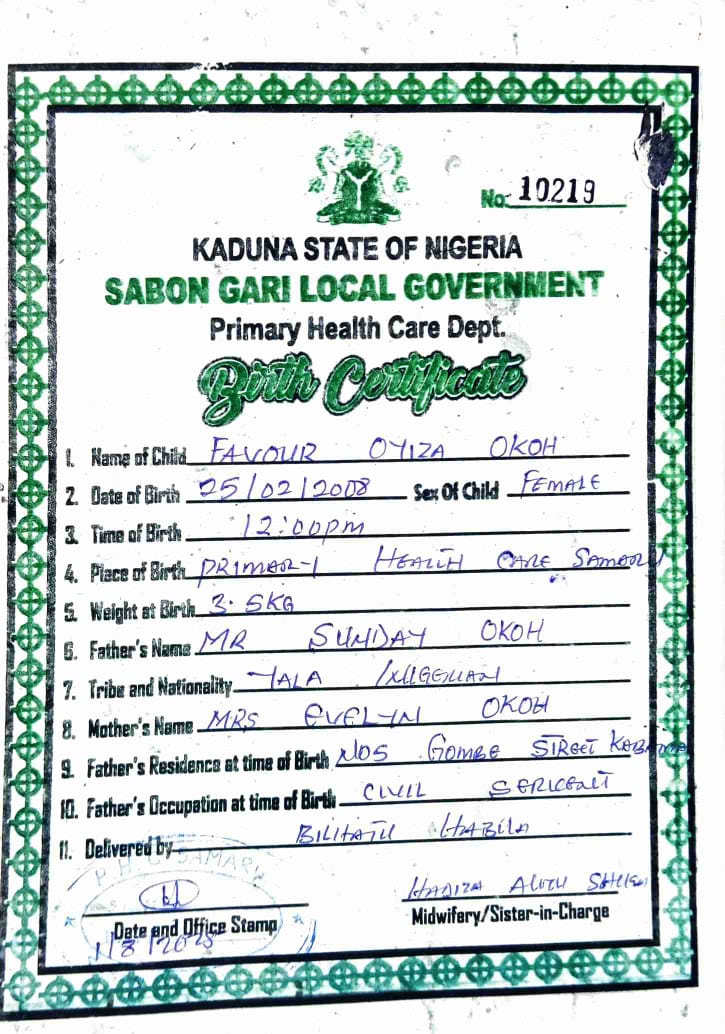 No. 10219
KADUNA STATE OF NIGERIA
SABON GARI LOCAL GOVERNMENT
Primary Health Care Dept.
Birth Certificate
1. Name of Child FAVOUR OYIZA OKOH
2. Date of Birth 25/02/2008 Sex Of Child FEMALE
3. Time of Birth 12:00pm
4. Place of Birth PRIMARY HEALTH CARE SAMARU
5. Weight at Birth 3.5KG
6. Father's Name MR SUNDAY OKOH
7. Tribe and Nationality YALA /NIGERIAN
8. Mother's Name MRS EVELYN OKOH
9. Father's Residence at time of Birth GOMBE STREET
10. Father's Occupation at time of Birth CIVIL
11. Delivered by HABILA
P.H.C SAMARU
HADIZA
Date and Office Stamp Midwifery/Sister-in-Charge